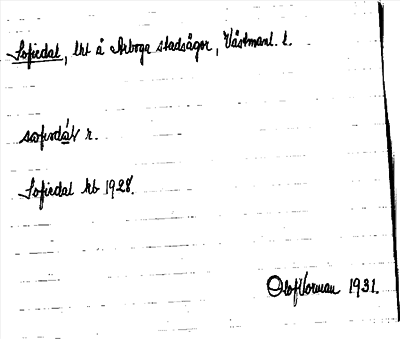 Sofiedal, lht å Arboga stadsägor, Västmanl. l.
sofidál r.
Sofiedal hb 1928.
Olof Norman 1931.